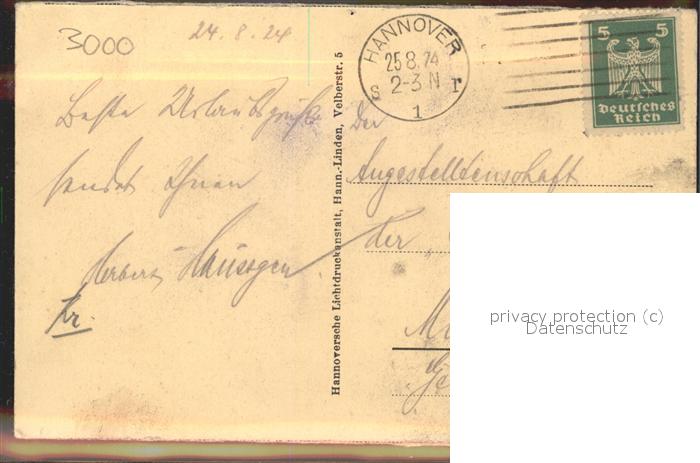 3000
24.8.24
Beste Urlaubsgrüße
sendet Ihnen
Herbert
Kr.
Hannoversche Lichtdruckanstalt, Hann.-Linden, Velberstr. 5
HANNOVER
25 8.24
2-3 N
S 1 r
5 5
Deutsches
Reich
Der
Angestelltenschaft
der
privacy protection (c)
Datenschutz